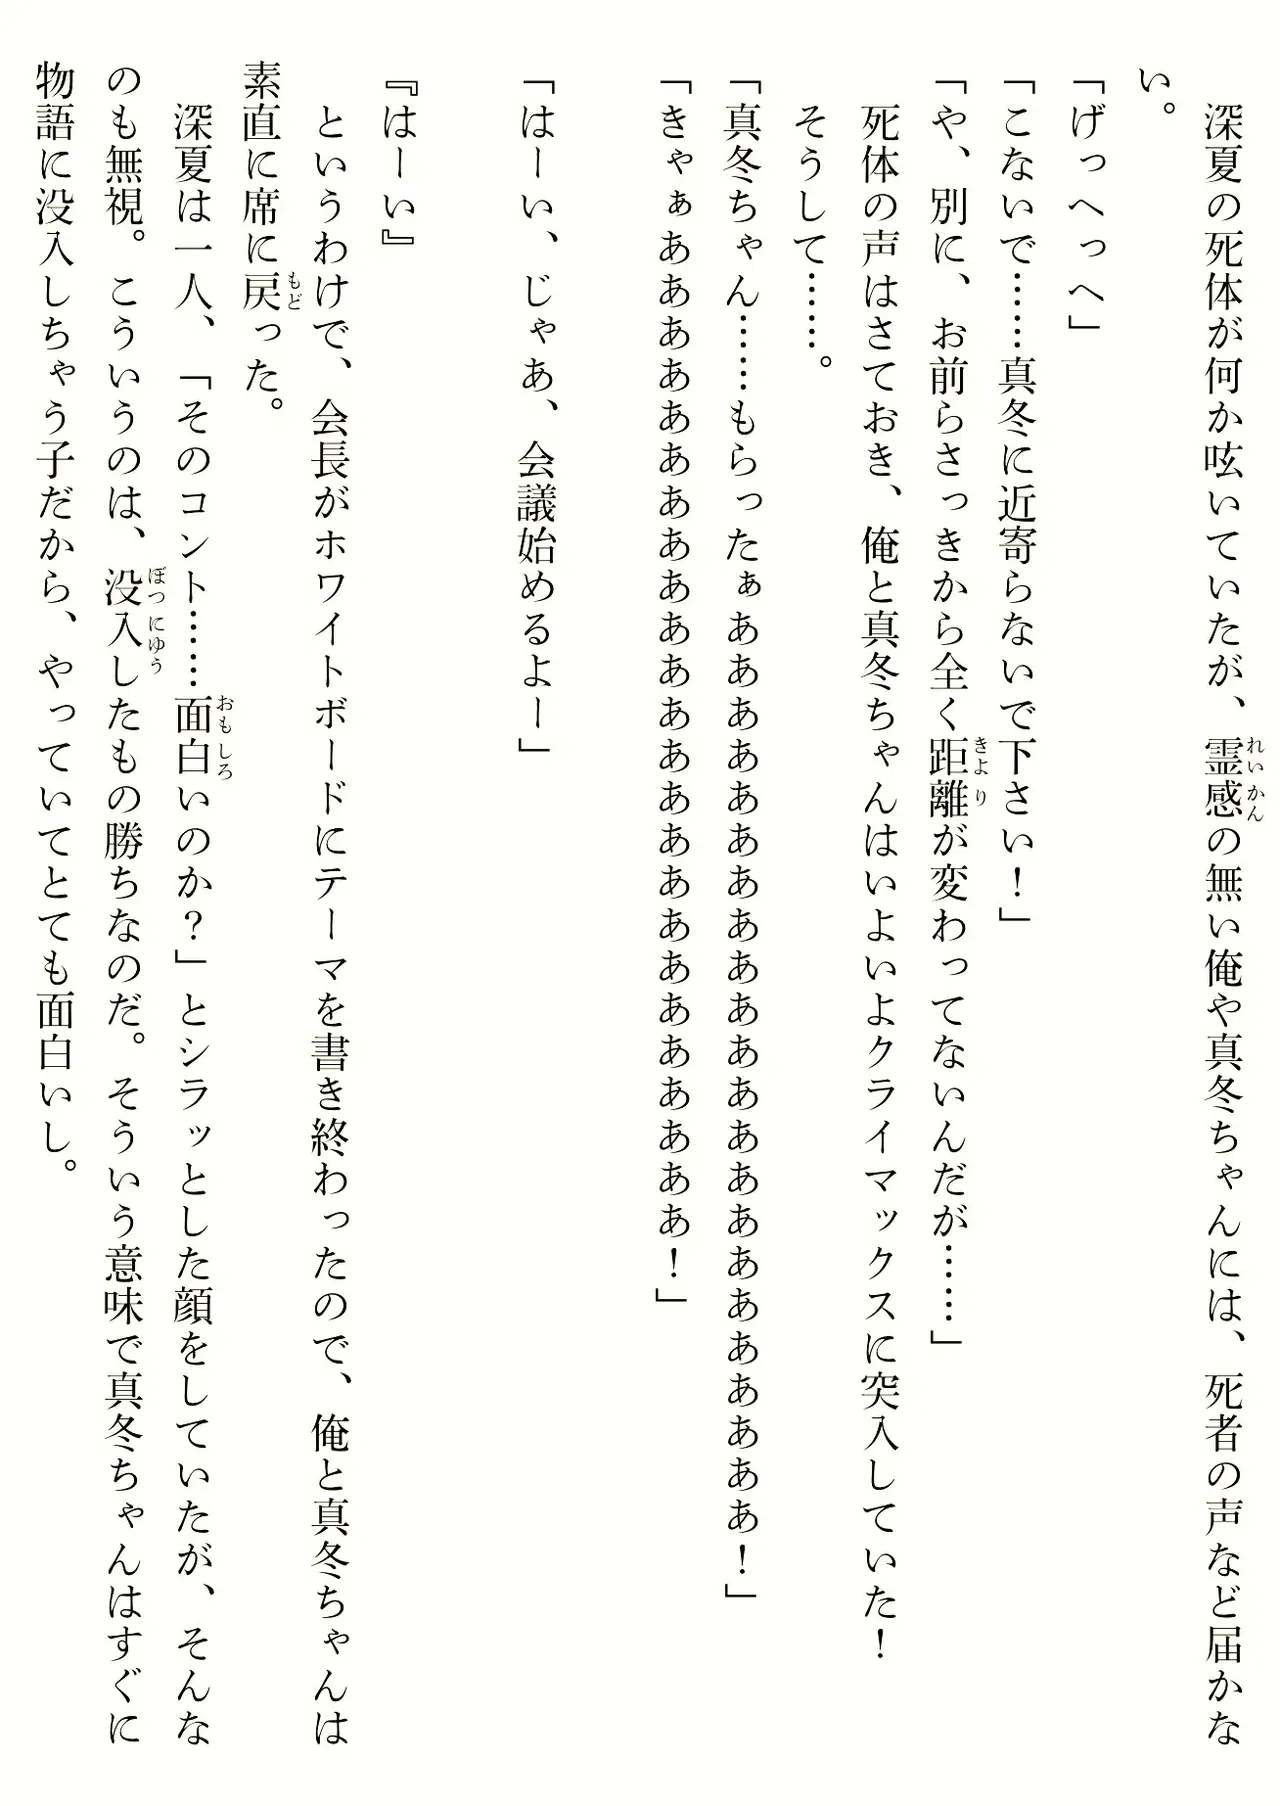 深夏の死体が何か呟いていたが、霊感の無い俺や真冬ちゃんには、死者の声など届かな
い。
「げっへっへ」
「こないで……真冬に近寄らないで下さい！」
「や、別に、お前らさっきから全く距離が変わってないんだが……」
死体の声はさておき、俺と真冬ちゃんはいよいよクライマックスに突入していた！
そうして……。
「真冬ちゃん……もらったぁああああああああああああああああああああああ！」
「きゃぁあああああああああああああああああああああああああ！」
「はーい、じゃあ、会議始めるよー」
『はーい』
というわけで、会長がホワイトボードにテーマを書き終わったので、俺と真冬ちゃんは
素直に席に戻った。
深夏は一人、「そのコント……面白いのか？」とシラッとした顔をしていたが、そんな
のも無視。こういうのは、没入したもの勝ちなのだ。そういう意味で真冬ちゃんはすぐに
物語に没入しちゃう子だから、やっていてとても面白いし。